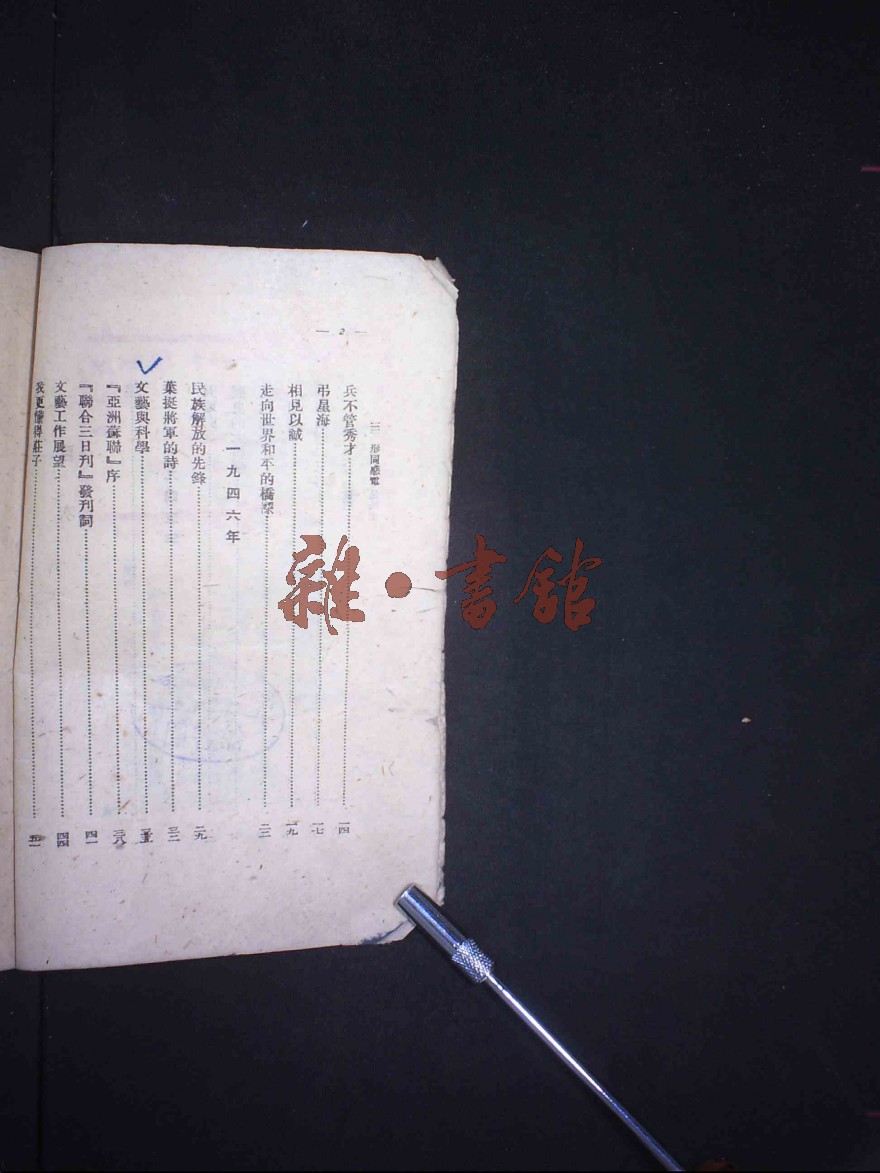 — 2 —
兵不管秀才 一四
弔星海 一七
相見以誠 一九
走向世界和平的橋梁 二二
一九四六年
民族解放的先鋒 二九
葉挺將軍的詩 三二
文藝與科學 三五
『亞洲蘇聯』序 三八
『聯合三日刊』發刊詞 四一
文藝工作展望 四四
我更懂得莊子 五一
雜·書館